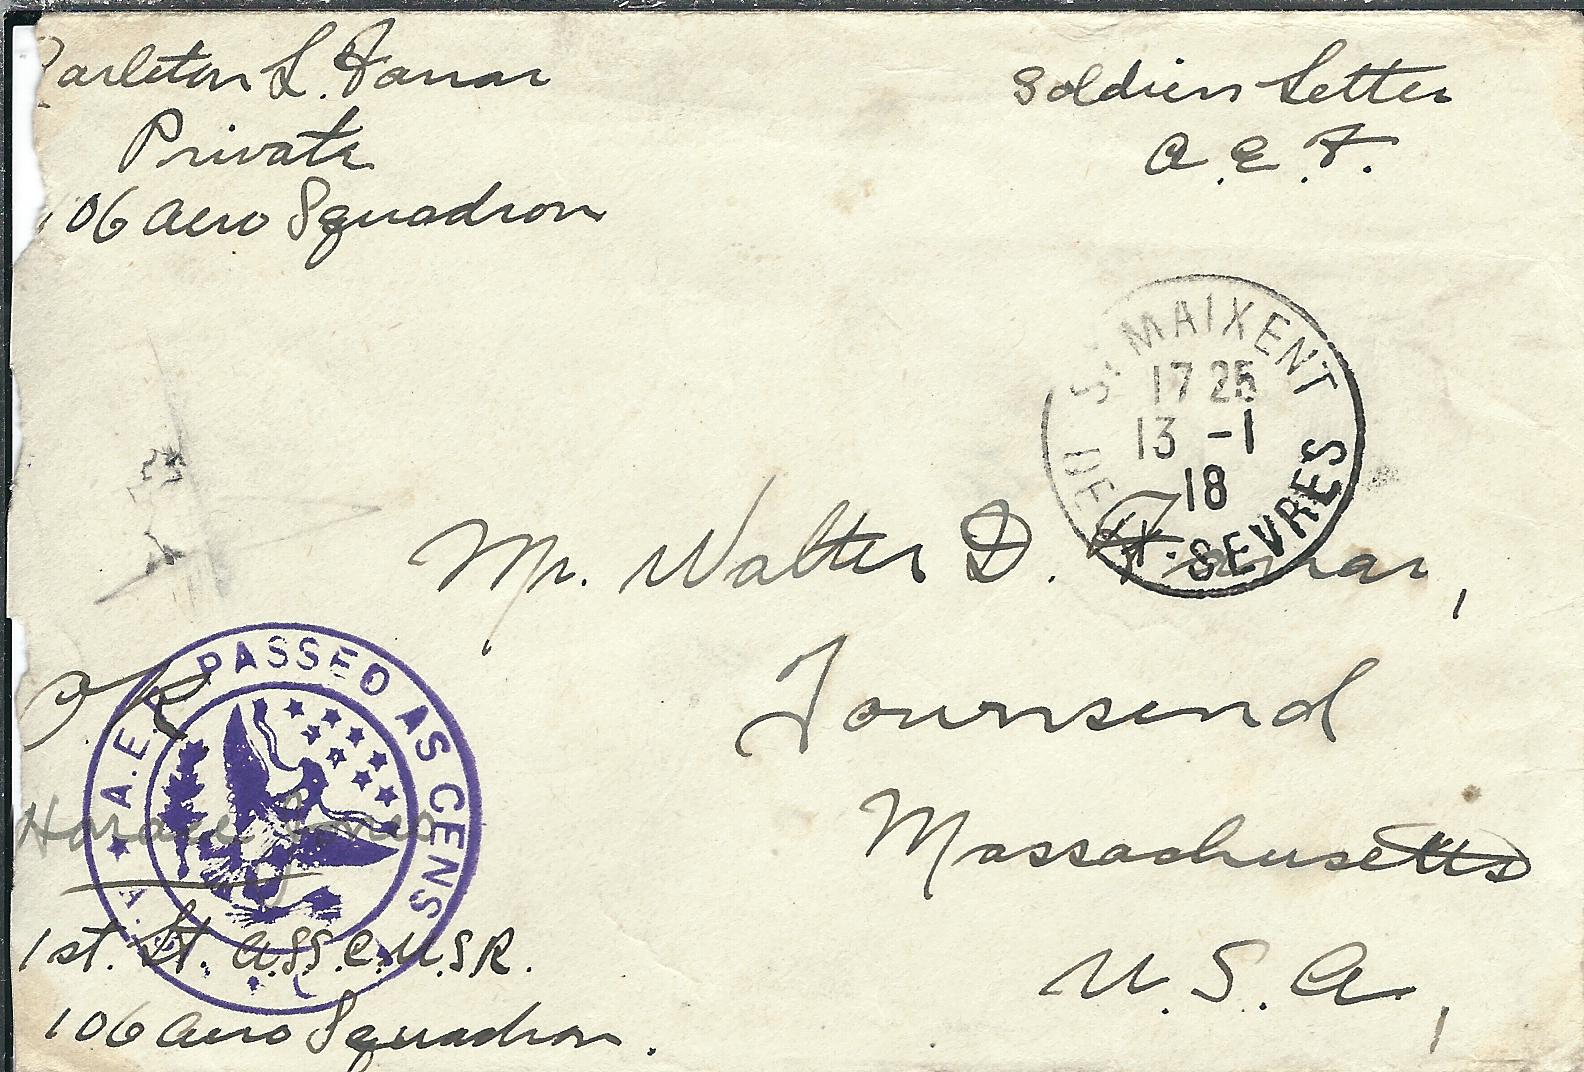 Carleton L. Farrar
Private
106 Aero Squadron
Soldiers Letter
A.E.F.
ST MAIXENT
17 25
13 -1
18
DEUX-SEVRES
Mr. Walter D. Farrar,
Townsend
Massachusetts
U.S.A,
O.K.
A.E.F. PASSED AS CENS
Horace Jones
1st. Lt. A.S.S.C.U.S.R.
106 Aero Squadron.